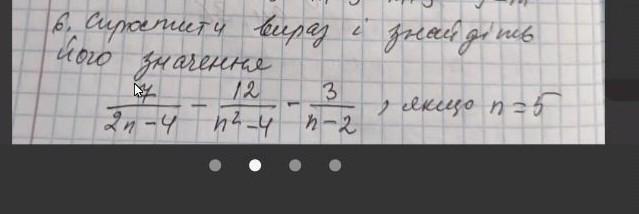 6. Спростити вираз і знайдіть
його значення
7/(2n-4) - 12/(n²-4) - 3/(n-2), якщо n=5